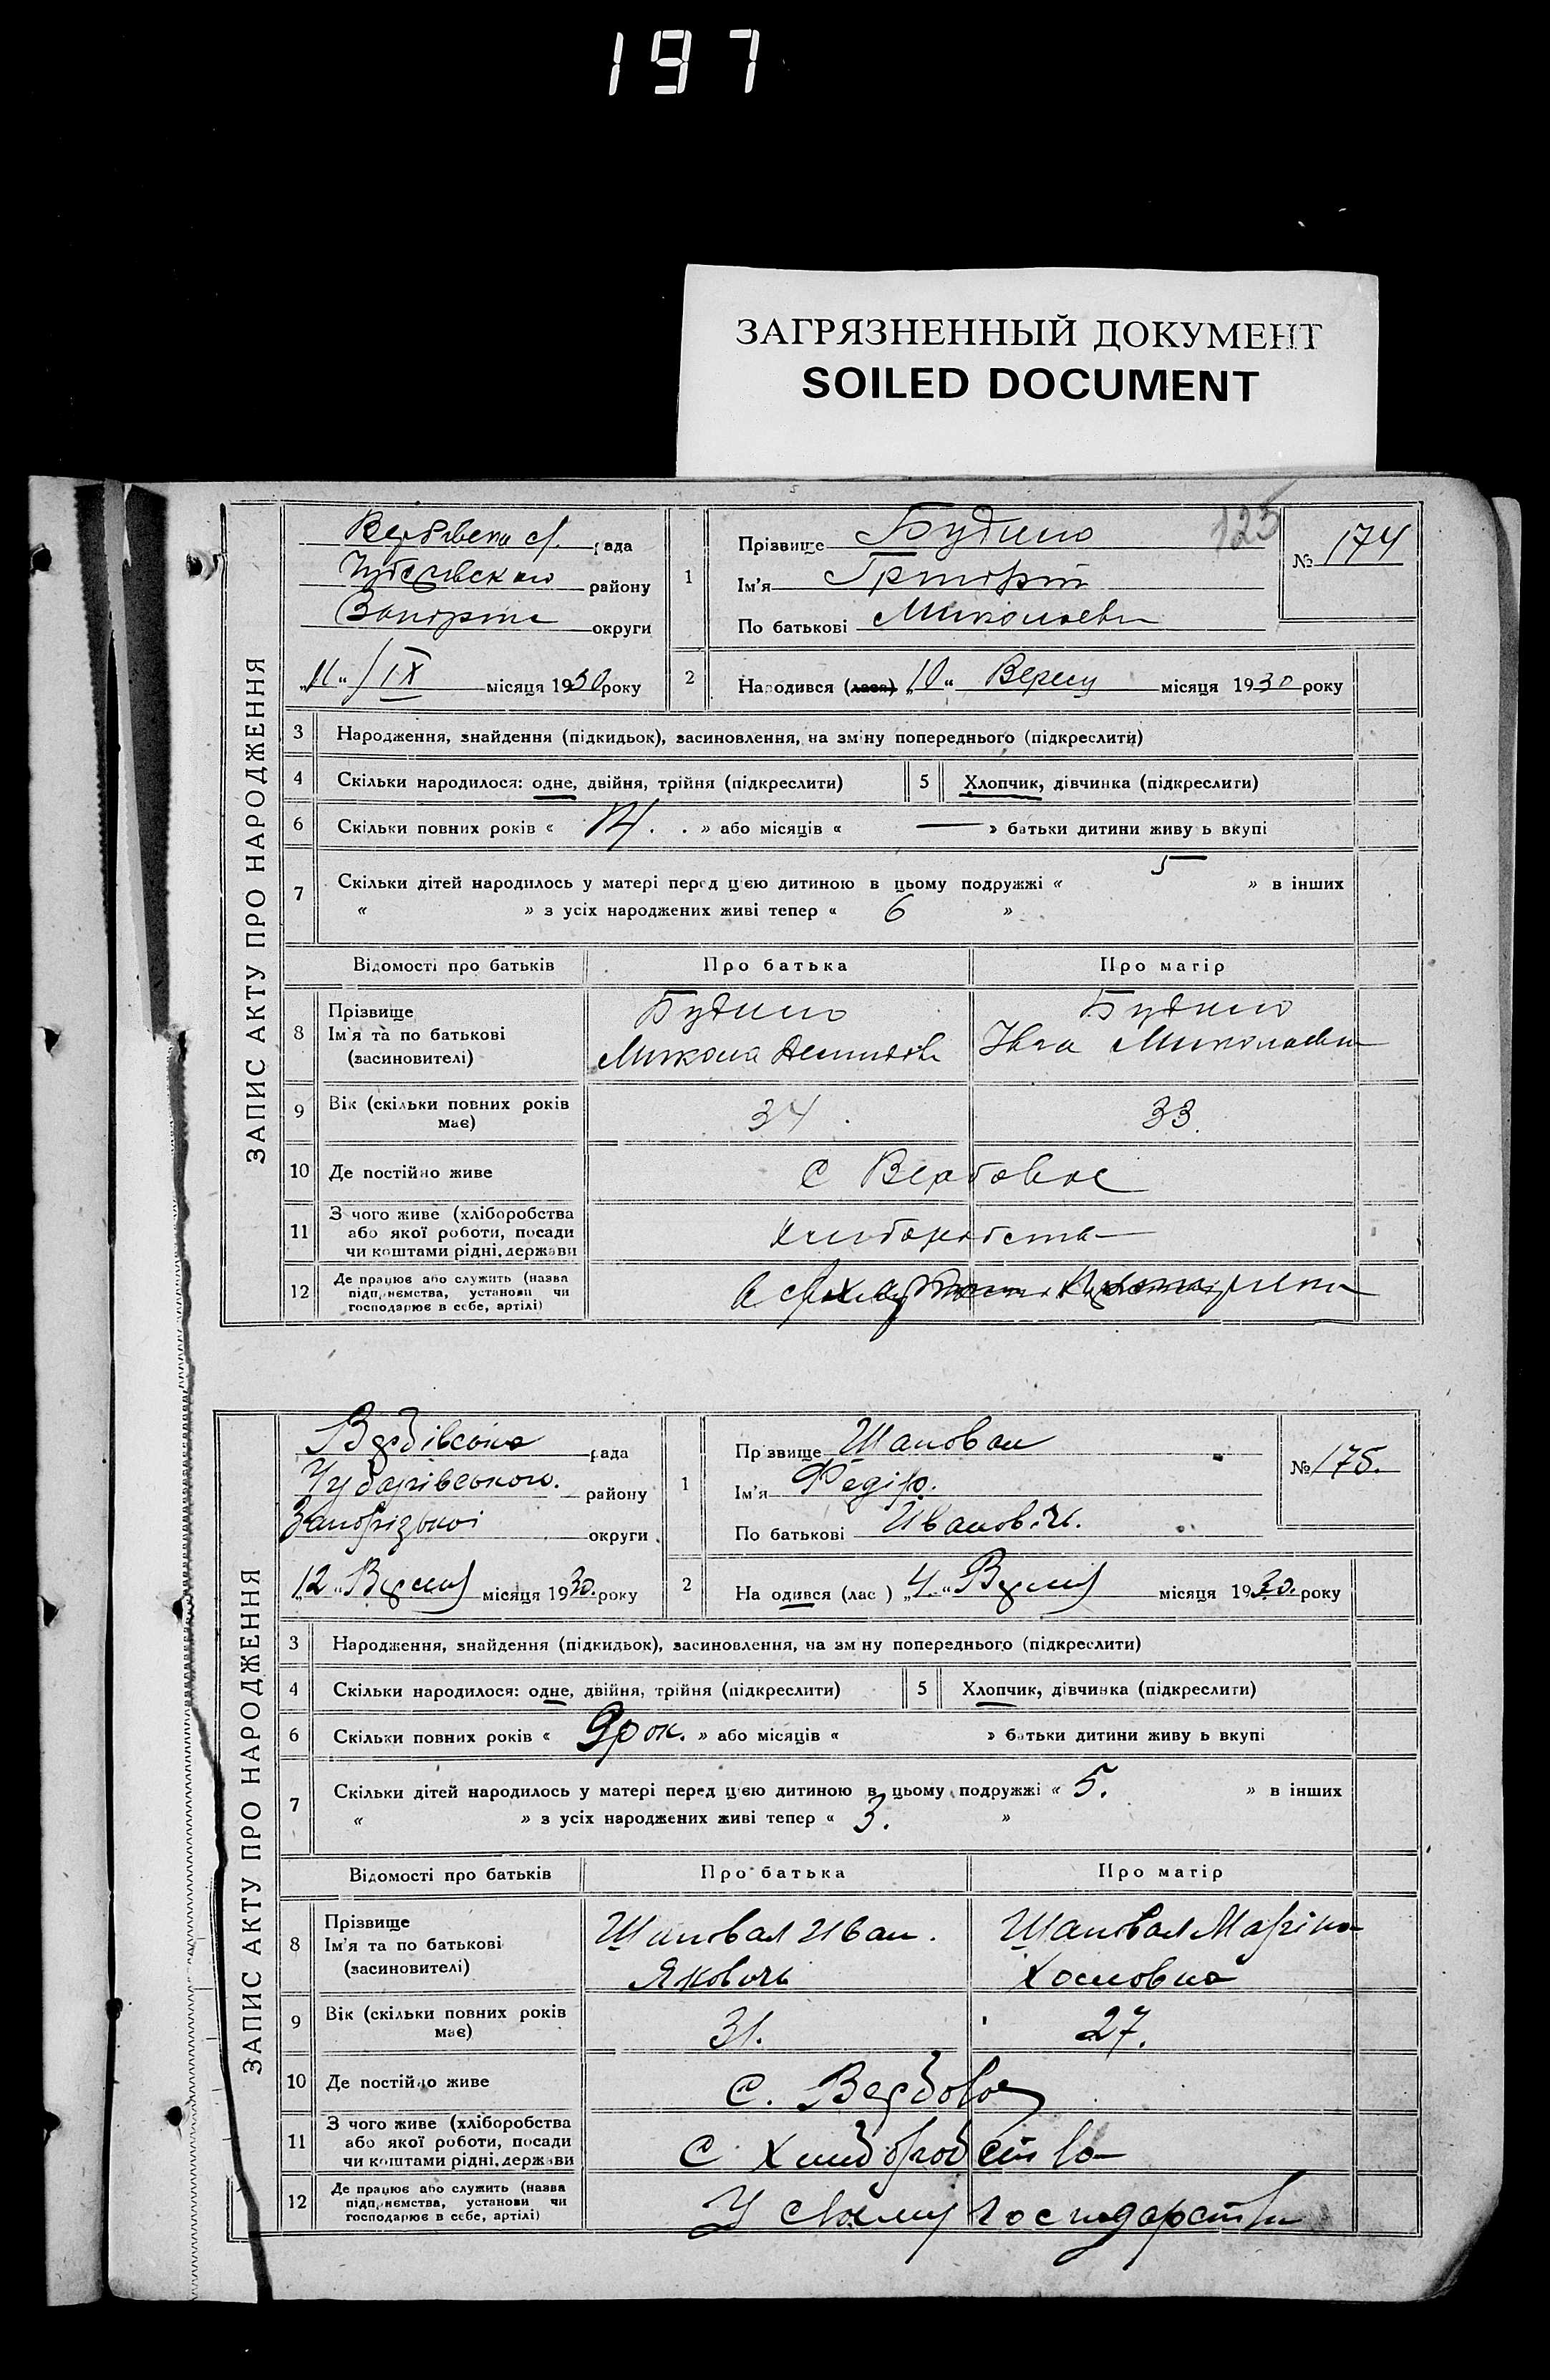 197
ЗАГРЯЗНЕННЫЙ ДОКУМЕНТ
SOILED DOCUMENT
125
ЗАПИС АКТУ ПРО НАРОДЖЕННЯ
рада
району
округи
"11" IX місяця 1930 року
1
Прізвище Будило
Ім'я Григорій
По батькові Миколаев
№ 174
2
Народився (лась) "10" Вересу місяця 1930 року
3 Народження, знайдення (підкидьок), засиновлення, на зміну попереднього (підкреслити)
4 Скільки народилося: одне, двійня, трійня (підкреслити)
5 Хлопчик, дівчинка (підкреслити)
6 Скільки повних років « 14. » або місяців « — » батьки дитини живу ь вкупі
7 Скільки дітей народилось у матері перед цією дитиною в цьому подружжі « 5 » в інших
« » з усіх народжених живі тепер « 6 »
Відомості про батьків Про батька Про матір
8 Прізвище
Ім'я та по батькові
(засиновителі)
Будило
Микола
Будило
Ївга Миколаевн
9 Вік (скільки повних років
має)
34
33
10 Де постійно живе
с Вербовое
11 З чого живе (хліборобства
або якої роботи, посади
чи коштами рідні, держави
хлиборобства
12 Де працює або служить (назва
підприємства, установи чи
господарює в себе, артілі)
ЗАПИС АКТУ ПРО НАРОДЖЕННЯ
Вербівська рада
Чубарівського. району
Запорізької округи
"12" Вересня місяця 1930. року
1
Пр звище Шаповал
Ім'я Федір.
По батькові Иванович.
№ 175.
2
На одився (лас ) "4." Вересня місяця 1930. року
3 Народження, знайдення (підкидьок), засиновлення, на зм ну попереднього (підкреслити)
4 Скільки народилося: одне, двійня, трійня (підкреслити)
5 Хлопчик, дівчинка (підкреслити)
6 Скільки повних років « 9 рок. » або місяців « » батьки дитини живу ь вкупі
7 Скільки дітей народилось у матері перед цією дитиною в цьому подружжі « 5. » в інших
« » з усіх народжених живі тепер « 3. »
Відомості про батьків Про батька Про матір
8 Прізвище
Ім'я та по батькові
(засиновителі)
Шаповал Иван.
Якович
Шаповал Маріна
9 Вік (скільки повних років
має)
31.
27.
10 Де постійно живе
С. Вербовое
11 З чого живе (хліборобства
або якої роботи, посади
чи коштами рідні, держави
С хлиборобства
12 Де працює або служить (назва
підприємства, установи чи
господарює в себе, артілі)
У своему господарстви